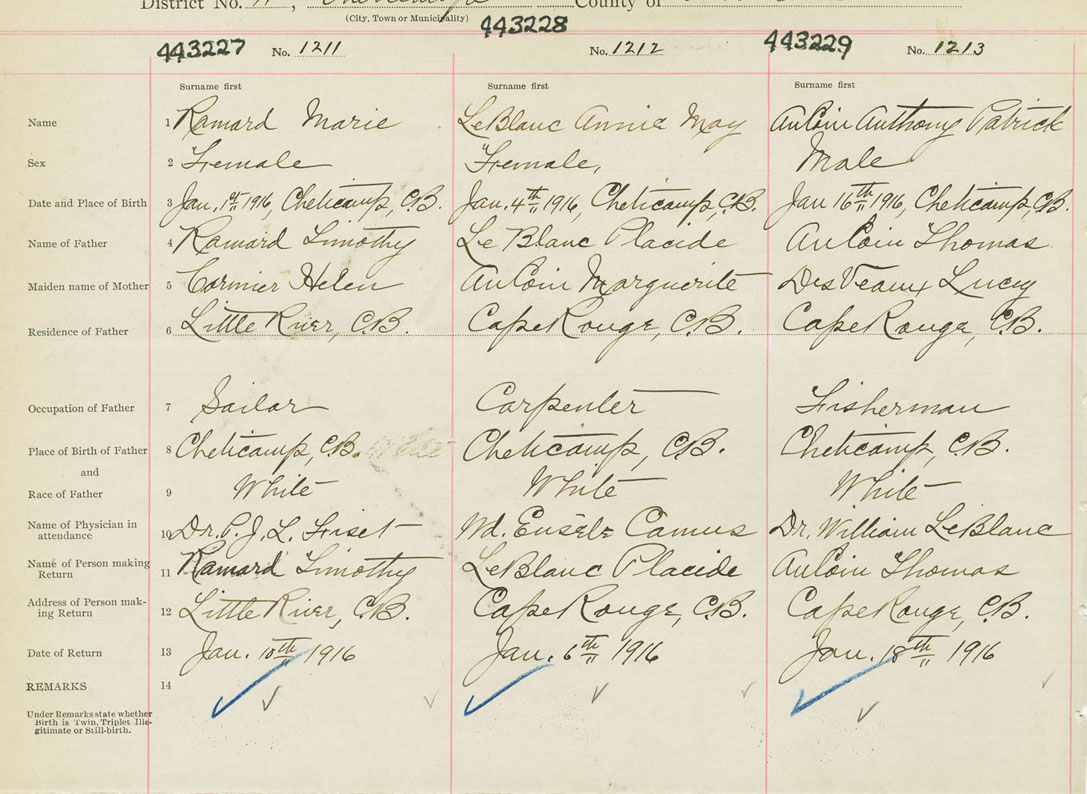 District No. 11, County of
(City, Town or Municipality)
443227 No. 1211 443228 No. 1212 443229 No. 1213
Surname first Surname first Surname first
Name 1 Ramard Marie LeBlanc Annie May AuCoin Anthony Patrick
Sex 2 Female Female, Male
Date and Place of Birth 3 Jan. 1st 1916, Cheticamp, C.B. Jan. 4th 1916, Cheticamp, C.B. Jan 16th 1916, Cheticamp, C.B.
Name of Father 4 Ramard Timothy Le Blanc Placide AuCoin Thomas
Maiden name of Mother 5 Cormier Helen AuCoin Marguerite DesVeaux Lucy
Residence of Father 6 Little River, C.B. Cape Rouge, C.B. Cape Rouge, C.B.
Occupation of Father 7 Sailor Carpenter Fisherman
Place of Birth of Father 8 Cheticamp, C.B. White Cheticamp, C.B. Cheticamp, C.B.
and
Race of Father 9 White White White
Name of Physician in
attendance 10 Dr. P. J. L. Fiset Wd. Eusèbe Camus Dr. William LeBlanc
Name of Person making
Return 11 Ramard Timothy LeBlanc Placide AuCoin Thomas
Address of Person mak-
ing Return 12 Little River, C.B. Cape Rouge, C.B. Cape Rouge, C.B.
Date of Return 13 Jan. 10th 1916 Jan. 6th 1916 Jan. 18th 1916
REMARKS 14
Under Remarks state whether
Birth is Twin, Triplet Ille-
gitimate or Still-birth.